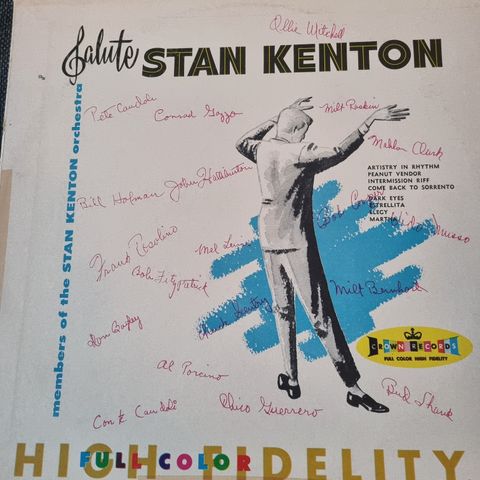 Ollie Mitchell
Salute STAN KENTON
members of the STAN KENTON orchestra
Pete Candoli
Conrad Gozzo
Milt Raskin
Mahlon Clark
ARTISTRY IN RHYTHM
PEANUT VENDOR
INTERMISSION RIFF
COME BACK TO SORRENTO
DARK EYES
ESTRELLITA
ELEGY
MARTHA
Bill Holman
John Halliburton
Bob
Vido Musso
Frank Rosolino
Mel Lewis
Bob Fitzpatrick
Milt Bernhart
Don
Chuck Gentry
CROWN RECORDS
FULL COLOR HIGH FIDELITY
Al Porcino
Bud Shank
Conte Candoli
Chico Guerrero
HIGH FIDELITY
FULL COLOR